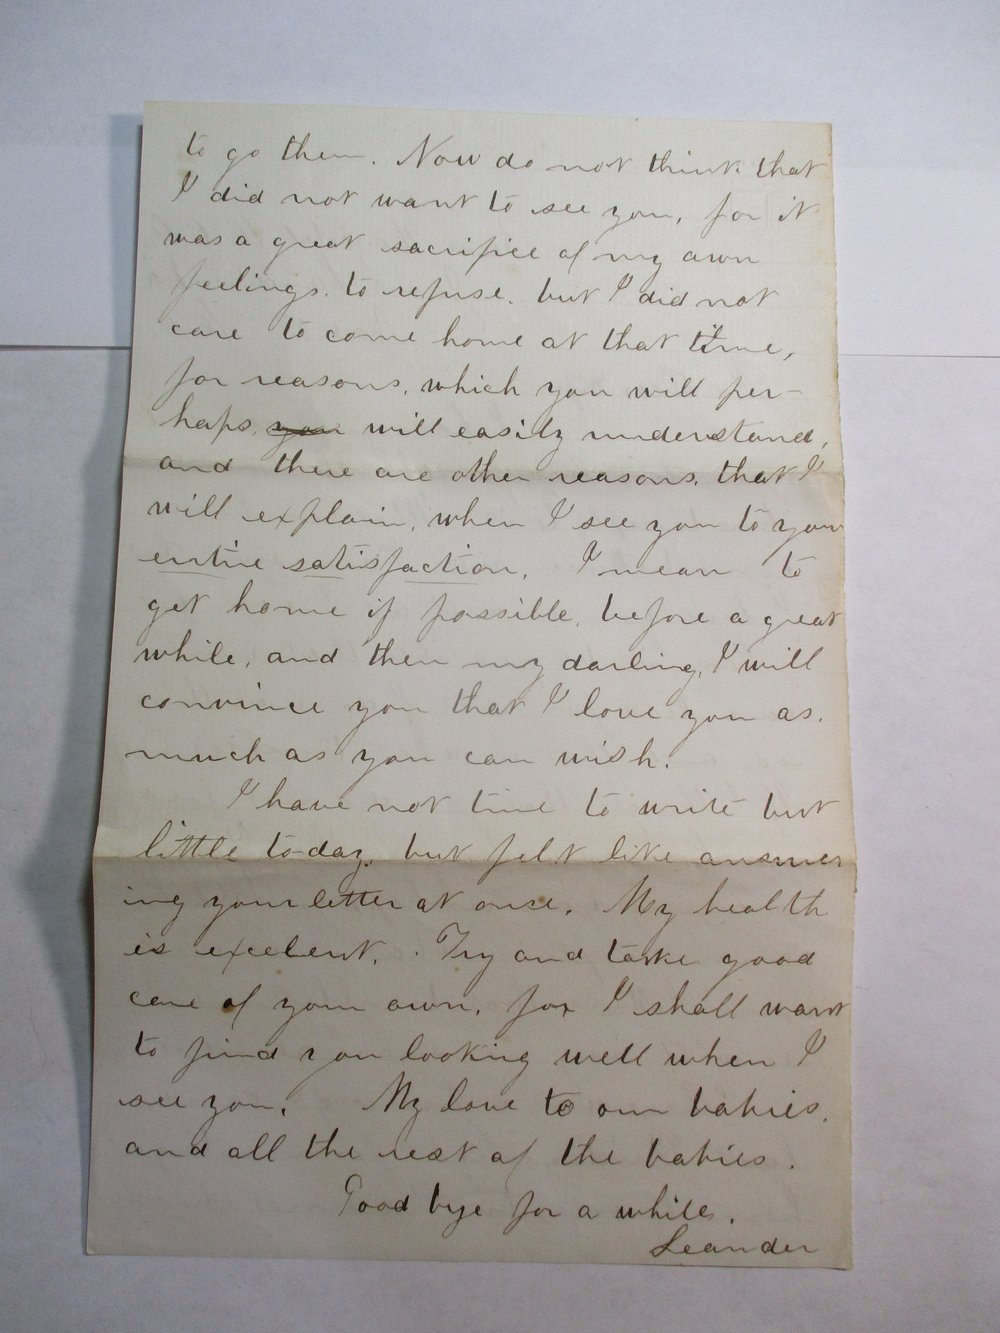 to go them. Now do not think that
I did not want to see you, for it
was a great sacrifice of my own
feelings, to refuse, but I did not
care to come home at that time,
for reasons, which you will per-
haps, you will easily understand,
and there are other reasons, that I
will explain, when I see you to your
entire satisfaction. I mean to
get home if possible, before a great
while, and then my darling, I will
convince you that I love you as
much as you can wish.
I have not time to write but
little to-day, but felt like answer
ing your letter at once. My health
is excelent. Try and take good
care of your own, for I shall want
to find you looking well when I
see you. My love to our babies,
and all the rest of the babies.
Good bye for a while.
Leander